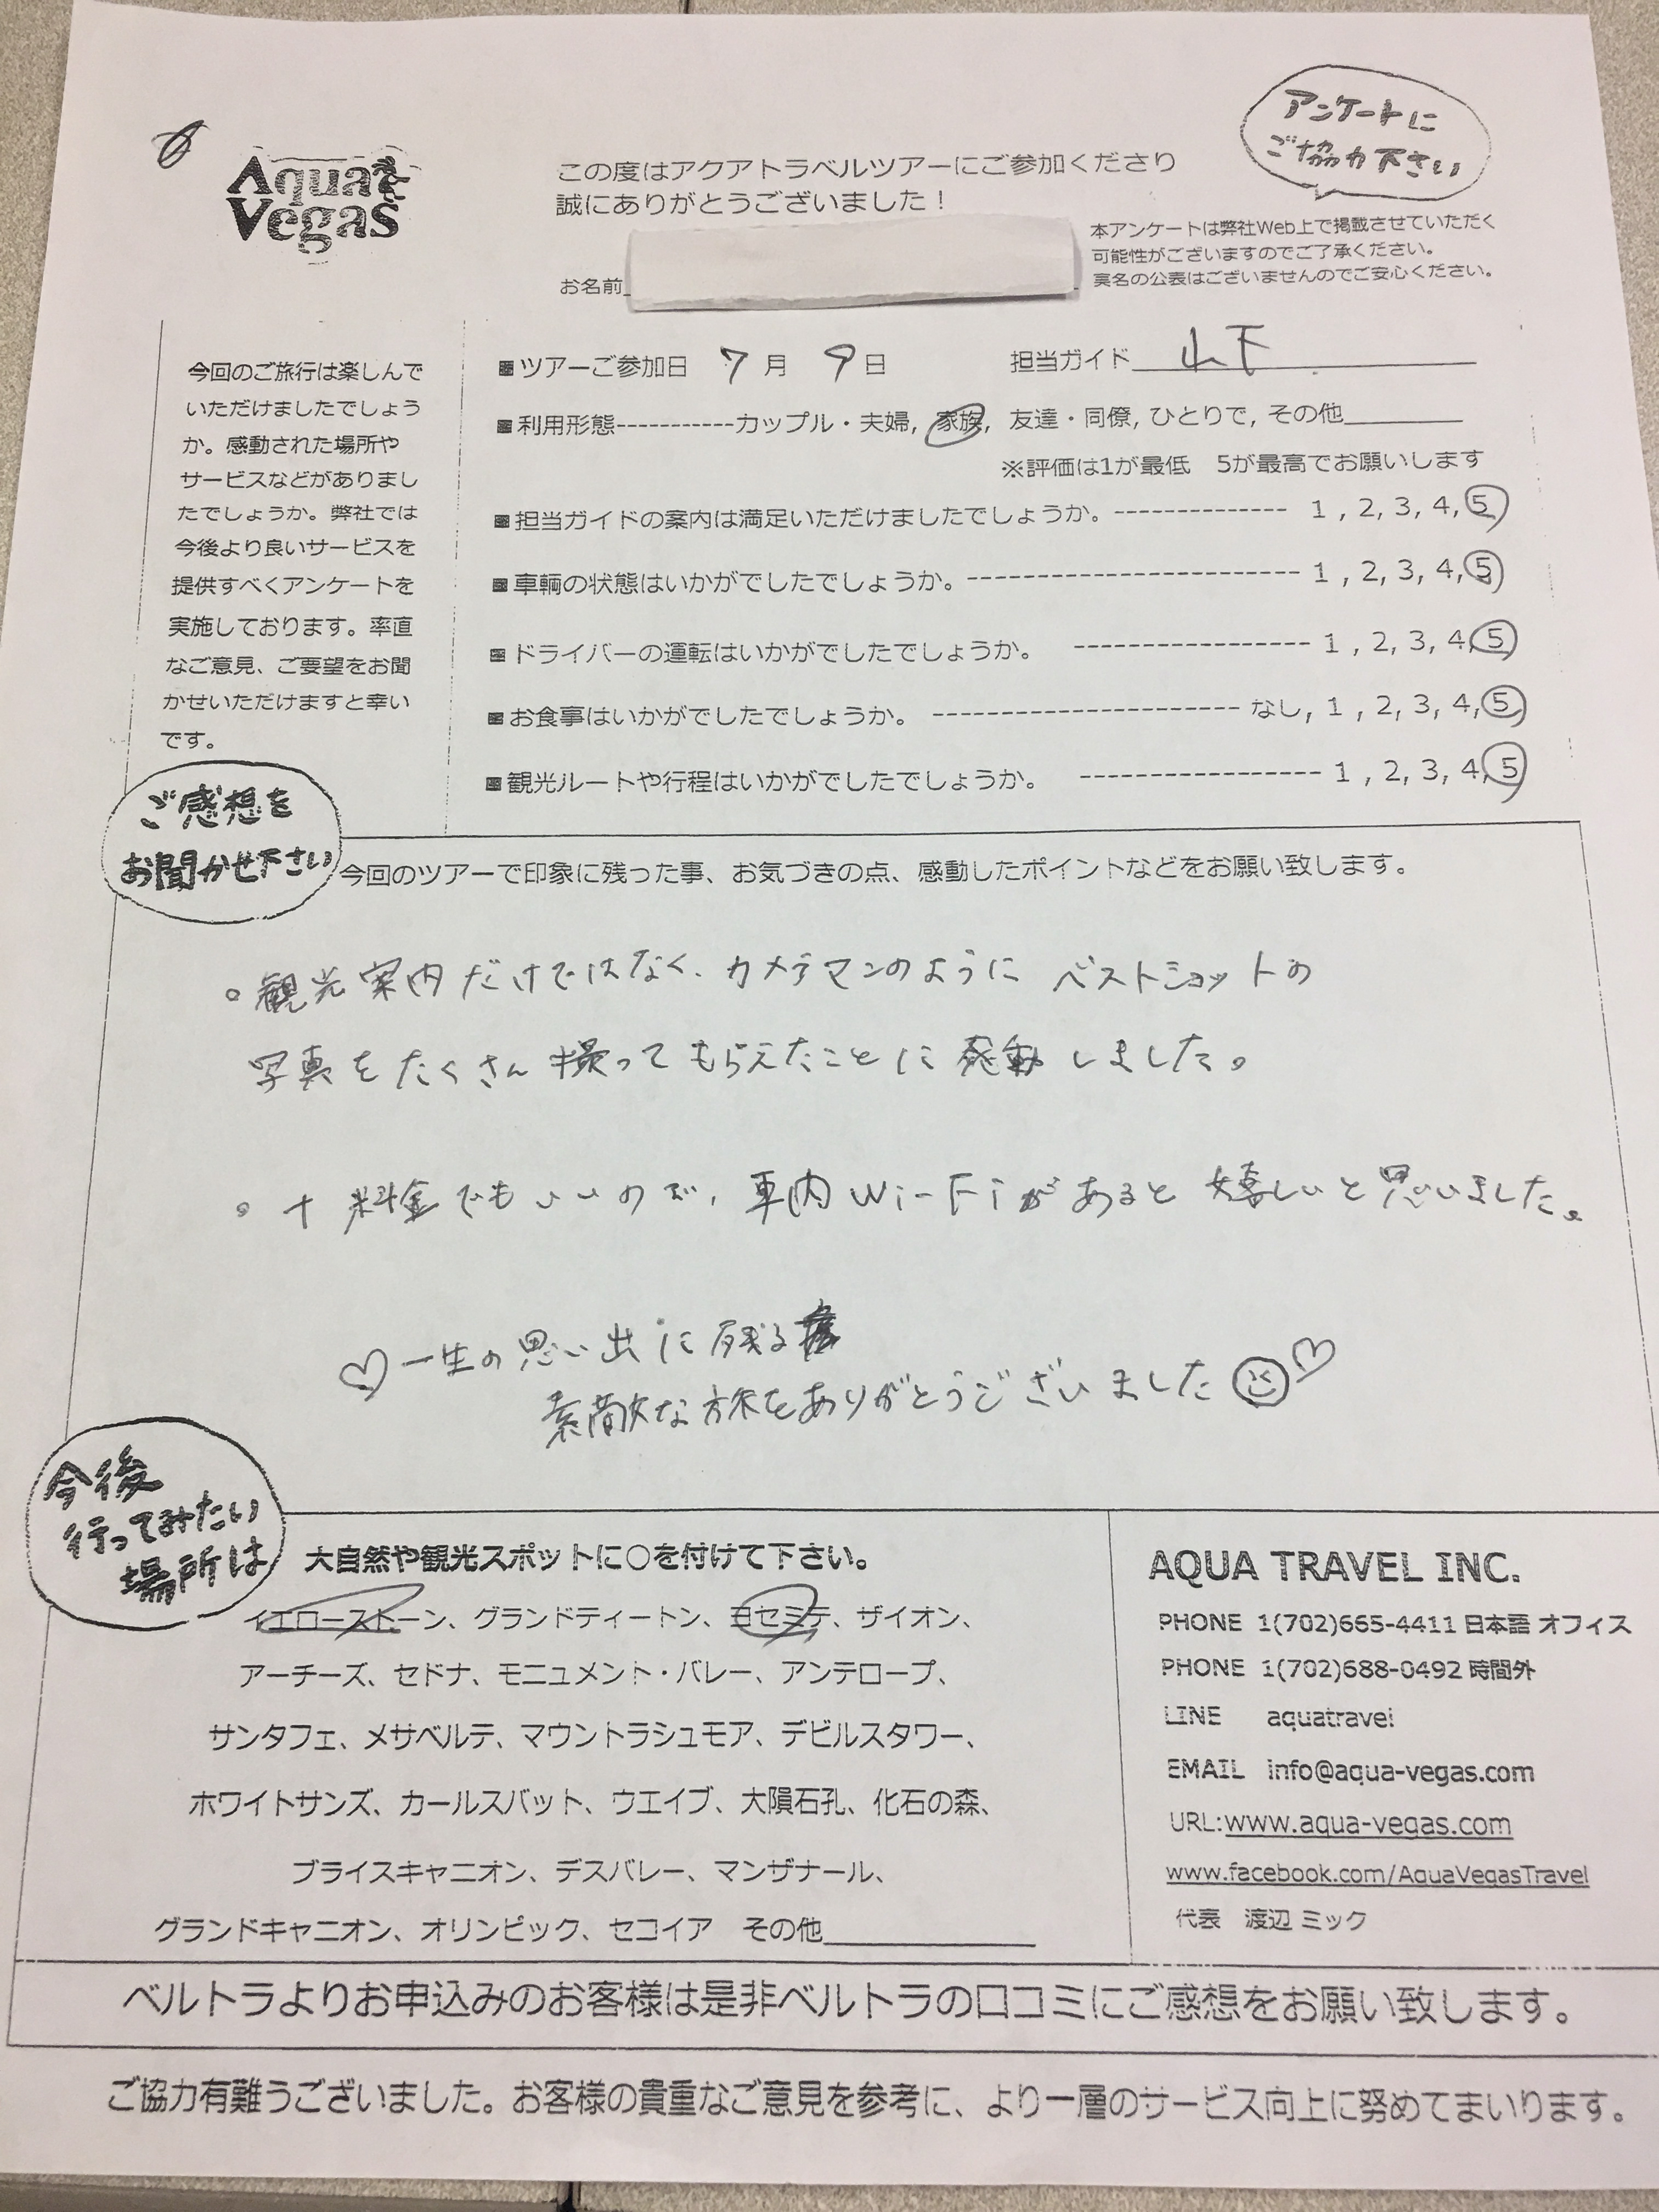 アンケートに
ご協力下さい
Aqua
Vegas
この度はアクアトラベルツアーにご参加くださり
誠にありがとうございました！
本アンケートは弊社Web上で掲載させていただく
可能性がございますのでご了承ください。
実名の公表はございませんのでご安心ください。
お名前
今回のご旅行は楽しんで
いただけましたでしょう
か。感動された場所や
サービスなどがありまし
たでしょうか。弊社では
今後より良いサービスを
提供すべくアンケートを
実施しております。率直
なご意見、ご要望をお聞
かせいただけますと幸い
です。
■ツアーご参加日 7月 9日 担当ガイド 山下
■利用形態-----------カップル・夫婦, 家族, 友達・同僚, ひとりで, その他
※評価は1が最低 5が最高でお願いします
■担当ガイドの案内は満足いただけましたでしょうか。-------------- 1 , 2, 3, 4, 5
■車輌の状態はいかがでしたでしょうか。--------------------------- 1 , 2, 3, 4, 5
■ドライバーの運転はいかがでしたでしょうか。 ------------------- 1 , 2, 3, 4, 5
■お食事はいかがでしたでしょうか。 ------------------------- なし, 1 , 2, 3, 4, 5
■観光ルートや行程はいかがでしたでしょうか。 -------------------- 1 , 2, 3, 4, 5
ご感想を
お聞かせ下さい
今回のツアーで印象に残った事、お気づきの点、感動したポイントなどをお願い致します。
。観光案内だけではなく、カメラマンのように ベストショットの
写真をたくさん撮ってもらえたことに感動しました。
。+料金でもいいので、車内Wi-Fiがあると嬉しいと思いました。
♡一生の思い出に残る
素敵な旅をありがとうございました☺♡
今後
行ってみたい
場所は
大自然や観光スポットに〇を付けて下さい。
イエローストーン、グランドティートン、ヨセミテ、ザイオン、
アーチーズ、セドナ、モニュメント・バレー、アンテロープ、
サンタフェ、メサベルテ、マウントラシュモア、デビルスタワー、
ホワイトサンズ、カールスバット、ウエイブ、大隕石孔、化石の森、
ブライスキャニオン、デスバレー、マンザナール、
グランドキャニオン、オリンピック、セコイア その他
AQUA TRAVEL INC.
PHONE 1(702)665-4411 日本語 オフィス
PHONE 1(702)688-0492 時間外
LINE aquatravel
EMAIL info@aqua-vegas.com
URL:www.aqua-vegas.com
www.facebook.com/AquaVegasTravel
代表 渡辺 ミック
ベルトラよりお申込みのお客様は是非ベルトラの口コミにご感想をお願い致します。
ご協力有難うございました。お客様の貴重なご意見を参考に、より一層のサービス向上に努めてまいります。